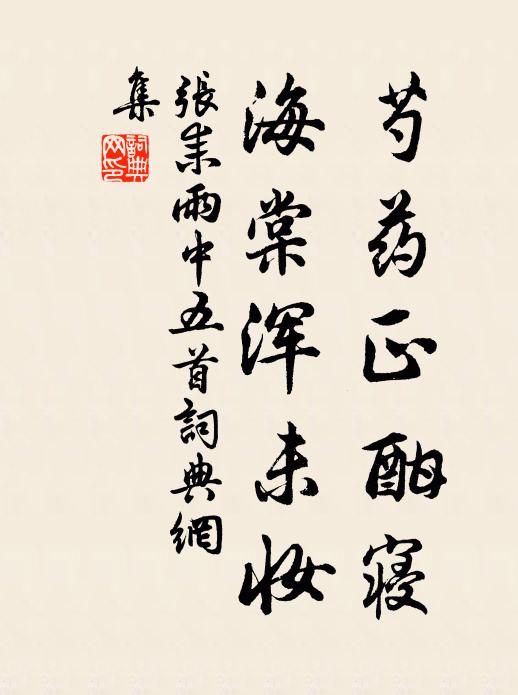 芍药正酣寝
海棠浑未妆
张耒雨中五首詞典網
集
詞典
网印